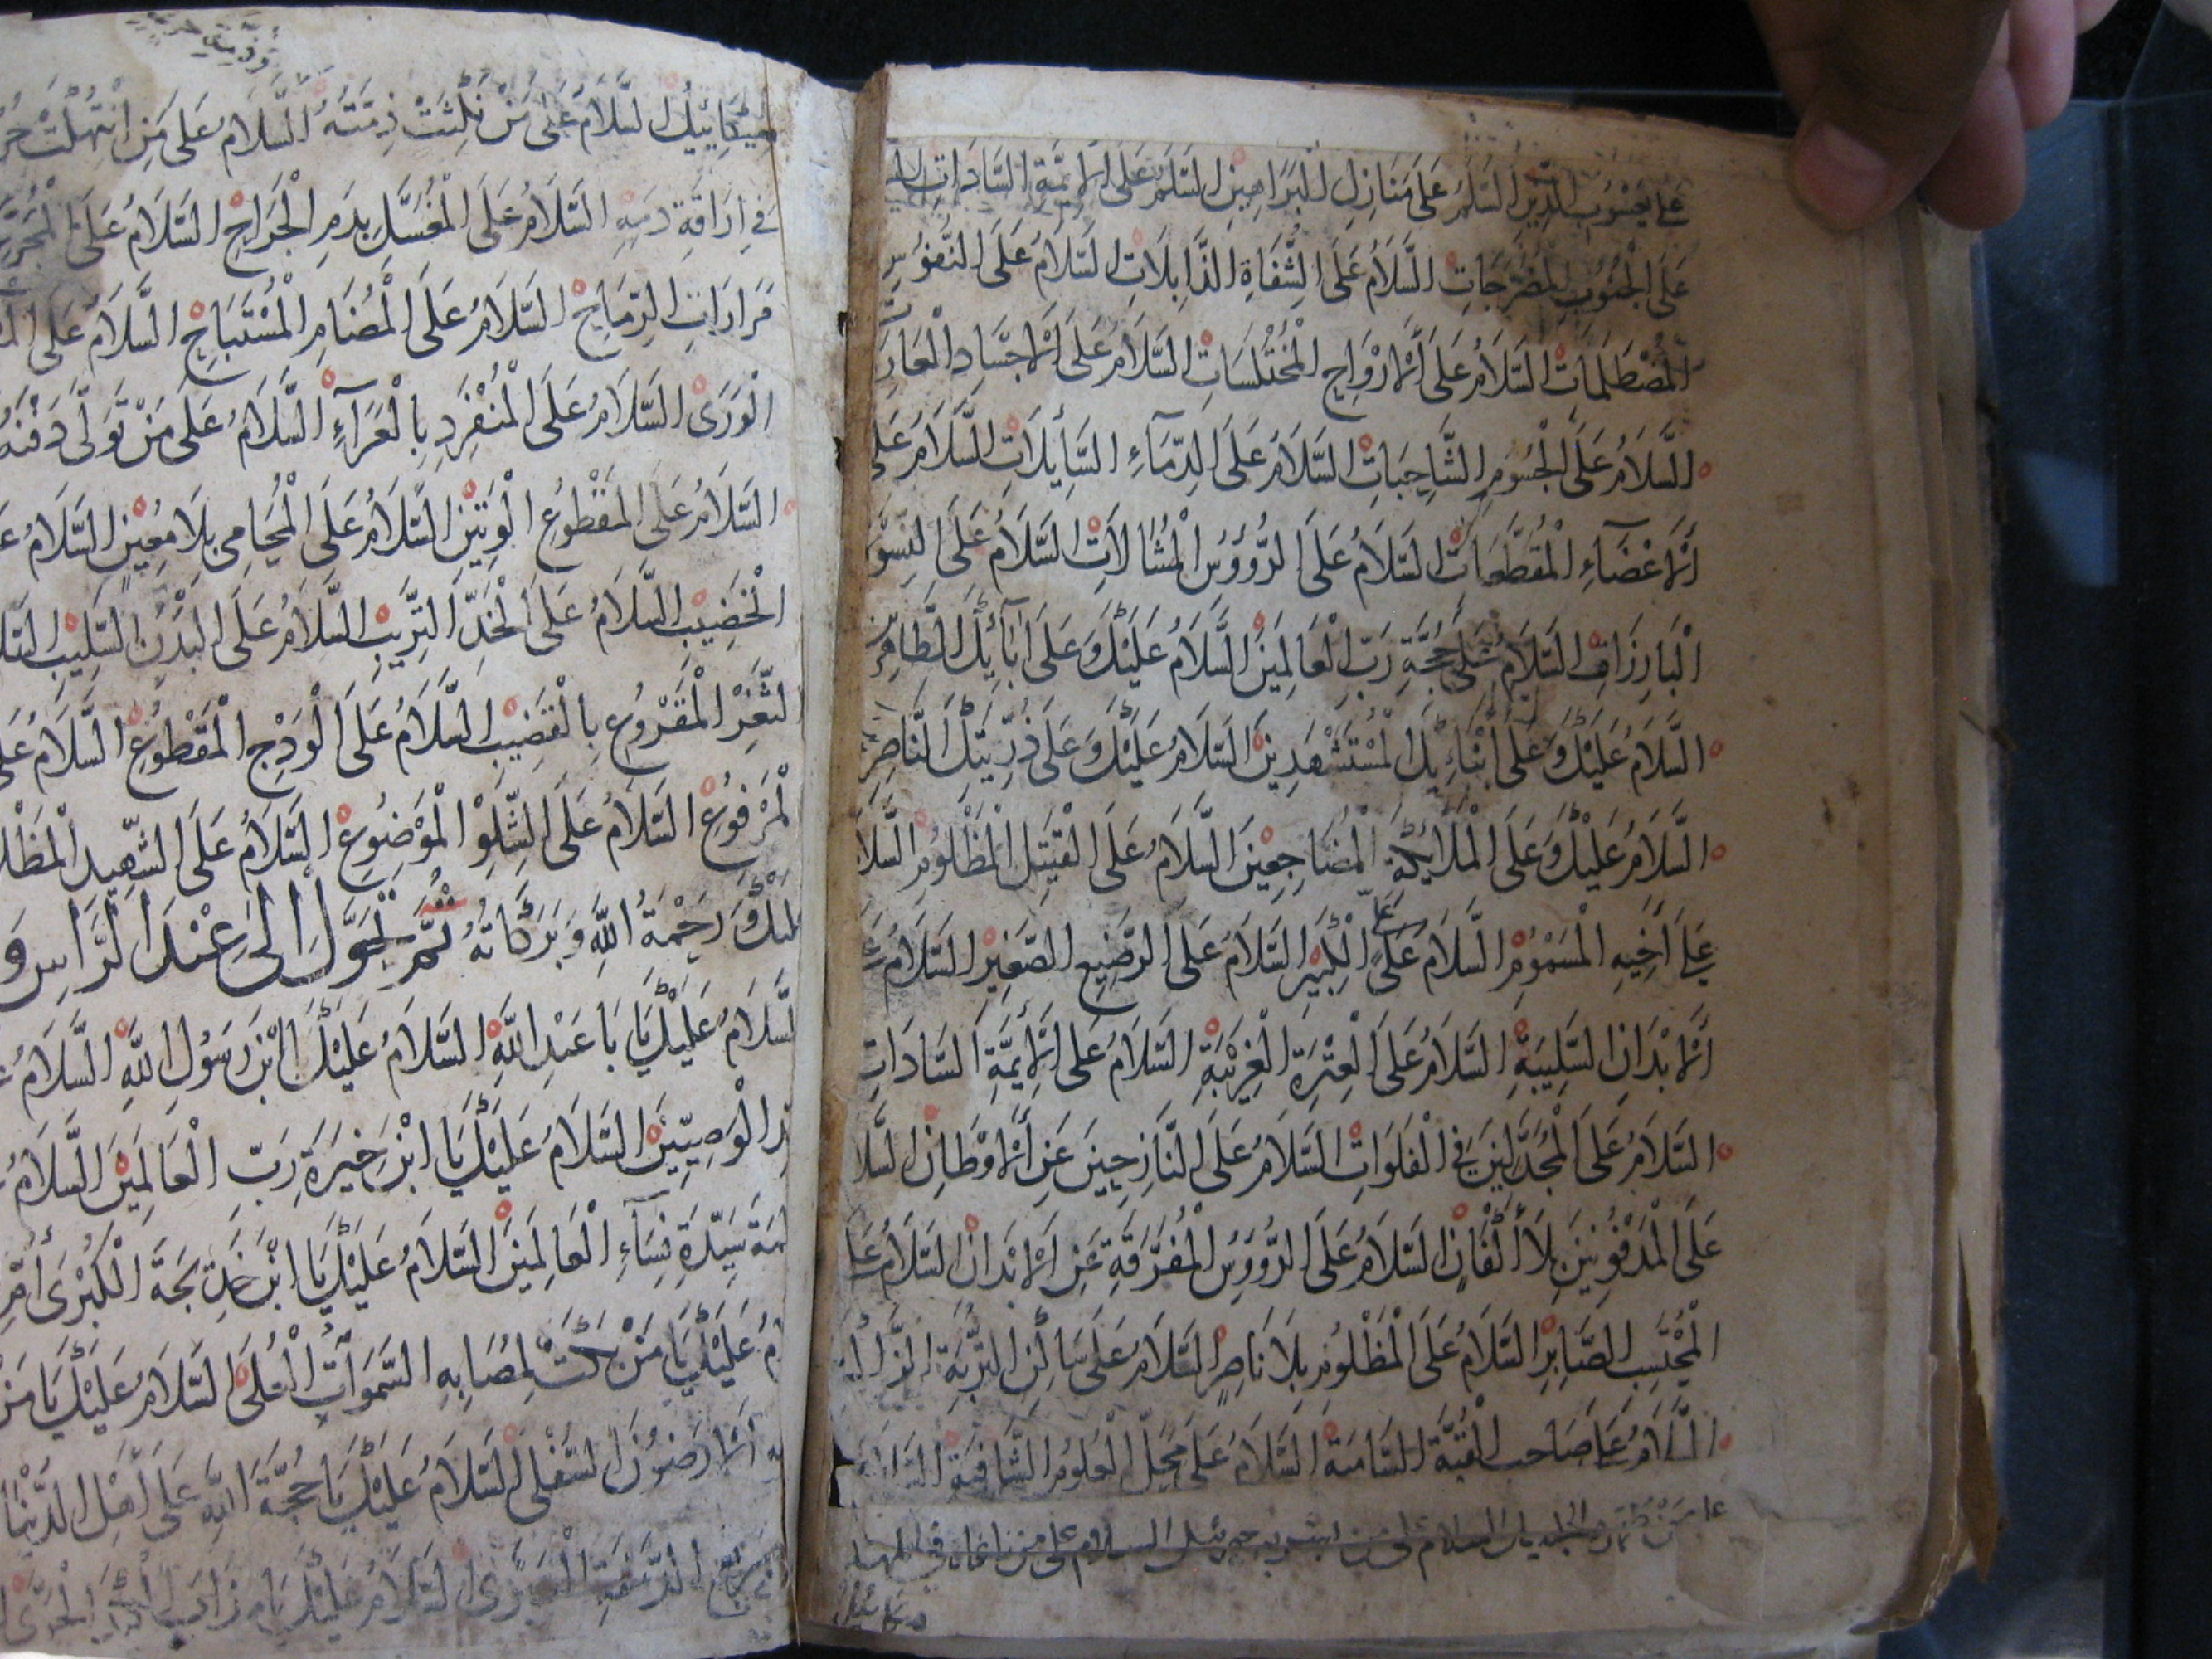 عَلَى يَعْسُوبِ الدِّينِ السَّلَامُ عَلَى مَنَازِلِ الْبَرَاهِينِ السَّلَامُ عَلَى الْأَئِمَّةِ السَّادَاتِ
عَلَى الْجُيُوبِ الْمُضَرَّجَاتِ السَّلَامُ عَلَى الشِّفَاةِ الذَّابِلَاتِ السَّلَامُ عَلَى النُّفُوسِ
الْمُصْطَلَمَاتِ السَّلَامُ عَلَى الْأَرْوَاحِ الْمُخْتَلَسَاتِ السَّلَامُ عَلَى الْأَجْسَادِ الْعَارِيَاتِ
السَّلَامُ عَلَى الْجُسُومِ الشَّاحِبَاتِ السَّلَامُ عَلَى الدِّمَاءِ السَّائِلَاتِ السَّلَامُ عَلَى
الْأَعْضَاءِ الْمُقَطَّعَاتِ السَّلَامُ عَلَى الرُّؤُوسِ الْمُشَالَاتِ السَّلَامُ عَلَى النِّسْوَةِ
الْبَارِزَاتِ السَّلَامُ عَلَى حُجَّةِ رَبِّ الْعَالَمِينَ السَّلَامُ عَلَيْكَ وَعَلَى آبَائِكَ الطَّاهِرِينَ
السَّلَامُ عَلَيْكَ وَعَلَى أَبْنَائِكَ الْمُسْتَشْهَدِينَ السَّلَامُ عَلَيْكَ وَعَلَى ذُرِّيَّتِكَ النَّاصِرِينَ
السَّلَامُ عَلَيْكَ وَعَلَى الْمَلَائِكَةِ الْمُضَاجِعِينَ السَّلَامُ عَلَى الْقَتِيلِ الْمَظْلُومِ السَّلَامُ
عَلَى أَخِيهِ الْمَسْمُومِ السَّلَامُ عَلَى عَلِيٍّ الْكَبِيرِ السَّلَامُ عَلَى الرَّضِيعِ الصَّغِيرِ السَّلَامُ عَلَى
الْأَبْدَانِ السَّلِيبَةِ السَّلَامُ عَلَى الْعِتْرَةِ الْغَرِيبَةِ السَّلَامُ عَلَى الْأَئِمَّةِ السَّادَاتِ
السَّلَامُ عَلَى الْمُجَدَّلِينَ فِي الْفَلَوَاتِ السَّلَامُ عَلَى النَّازِحِينَ عَنِ الْأَوْطَانِ السَّلَامُ
عَلَى الْمَدْفُونِينَ بِلَا أَكْفَانٍ السَّلَامُ عَلَى الرُّؤُوسِ الْمُفَرَّقَةِ عَنِ الْأَبْدَانِ السَّلَامُ عَلَى
الْمُحْتَسِبِ الصَّابِرِ السَّلَامُ عَلَى الْمَظْلُومِ بِلَا نَاصِرٍ السَّلَامُ عَلَى سَاكِنِ التُّرْبَةِ الزَّاكِيَةِ
السَّلَامُ عَلَى صَاحِبِ الْقُبَّةِ السَّامِيَةِ السَّلَامُ عَلَى
على من الجليل السلام على من به جبرئيل السلام على من ناغاه في المهد
ميكائيل
مِيكَائِيلُ السَّلَامُ عَلَى مَنْ نُكِثَتْ ذِمَّتُهُ السَّلَامُ عَلَى مَنِ انْتُهِكَتْ
فِي إِرَاقَةِ دَمِهِ السَّلَامُ عَلَى الْمُغَسَّلِ بِدَمِ الْجَرَاحِ السَّلَامُ عَلَى الْمُجَرَّعِ
مَرَارَاتِ الرِّمَاحِ السَّلَامُ عَلَى الْمُضَامِ الْمُسْتَبَاحِ السَّلَامُ عَلَى
الْوَرَى السَّلَامُ عَلَى الْمُنْفَرِدِ بِالْعَرَاءِ السَّلَامُ عَلَى مَنْ تَوَلَّى دَفْنَهُ
السَّلَامُ عَلَى الْمَقْطُوعِ الْوَتِينِ السَّلَامُ عَلَى الْمُحَامِي بِلَا مُعِينٍ السَّلَامُ
الْخَضِيبِ السَّلَامُ عَلَى الْخَدِّ التَّرِيبِ السَّلَامُ عَلَى الْبَدَنِ السَّلِيبِ
الثَّغْرِ الْمَقْرُوعِ بِالْقَضِيبِ السَّلَامُ عَلَى الْوَدَجِ الْمَقْطُوعِ السَّلَامُ عَلَى
الْمَرْفُوعِ السَّلَامُ عَلَى الشِّلْوِ الْمَوْضُوعِ السَّلَامُ عَلَى الشَّهِيدِ
وَرَحْمَةُ اللهِ وَبَرَكَاتُهُ ثُمَّ تَحَوَّلْ إِلَى عِنْدِ الرَّاسِ وَ
السَّلَامُ عَلَيْكَ يَا بَا عَبْدِ اللهِ السَّلَامُ عَلَيْكَ يَا ابْنَ رَسُولِ اللهِ السَّلَامُ
الْوَصِيِّينَ السَّلَامُ عَلَيْكَ يَا ابْنَ خِيَرَةِ رَبِّ الْعَالَمِينَ السَّلَامُ
سَيِّدَةِ نِسَاءِ الْعَالَمِينَ السَّلَامُ عَلَيْكَ يَا ابْنَ خَدِيجَةَ الْكُبْرَى أُمِّ
عَلَيْكَ يَا مَنْ بَكَتْ لِمُصَابِهِ السَّمَوَاتُ الْعُلَى السَّلَامُ عَلَيْكَ يَا مَنْ
الْأَرَضُونَ السُّفْلَى السَّلَامُ عَلَيْكَ يَا حُجَّةَ اللهِ عَلَى أَهْلِ الدُّنْيَا
السَّلَامُ عَلَيْكَ يَا